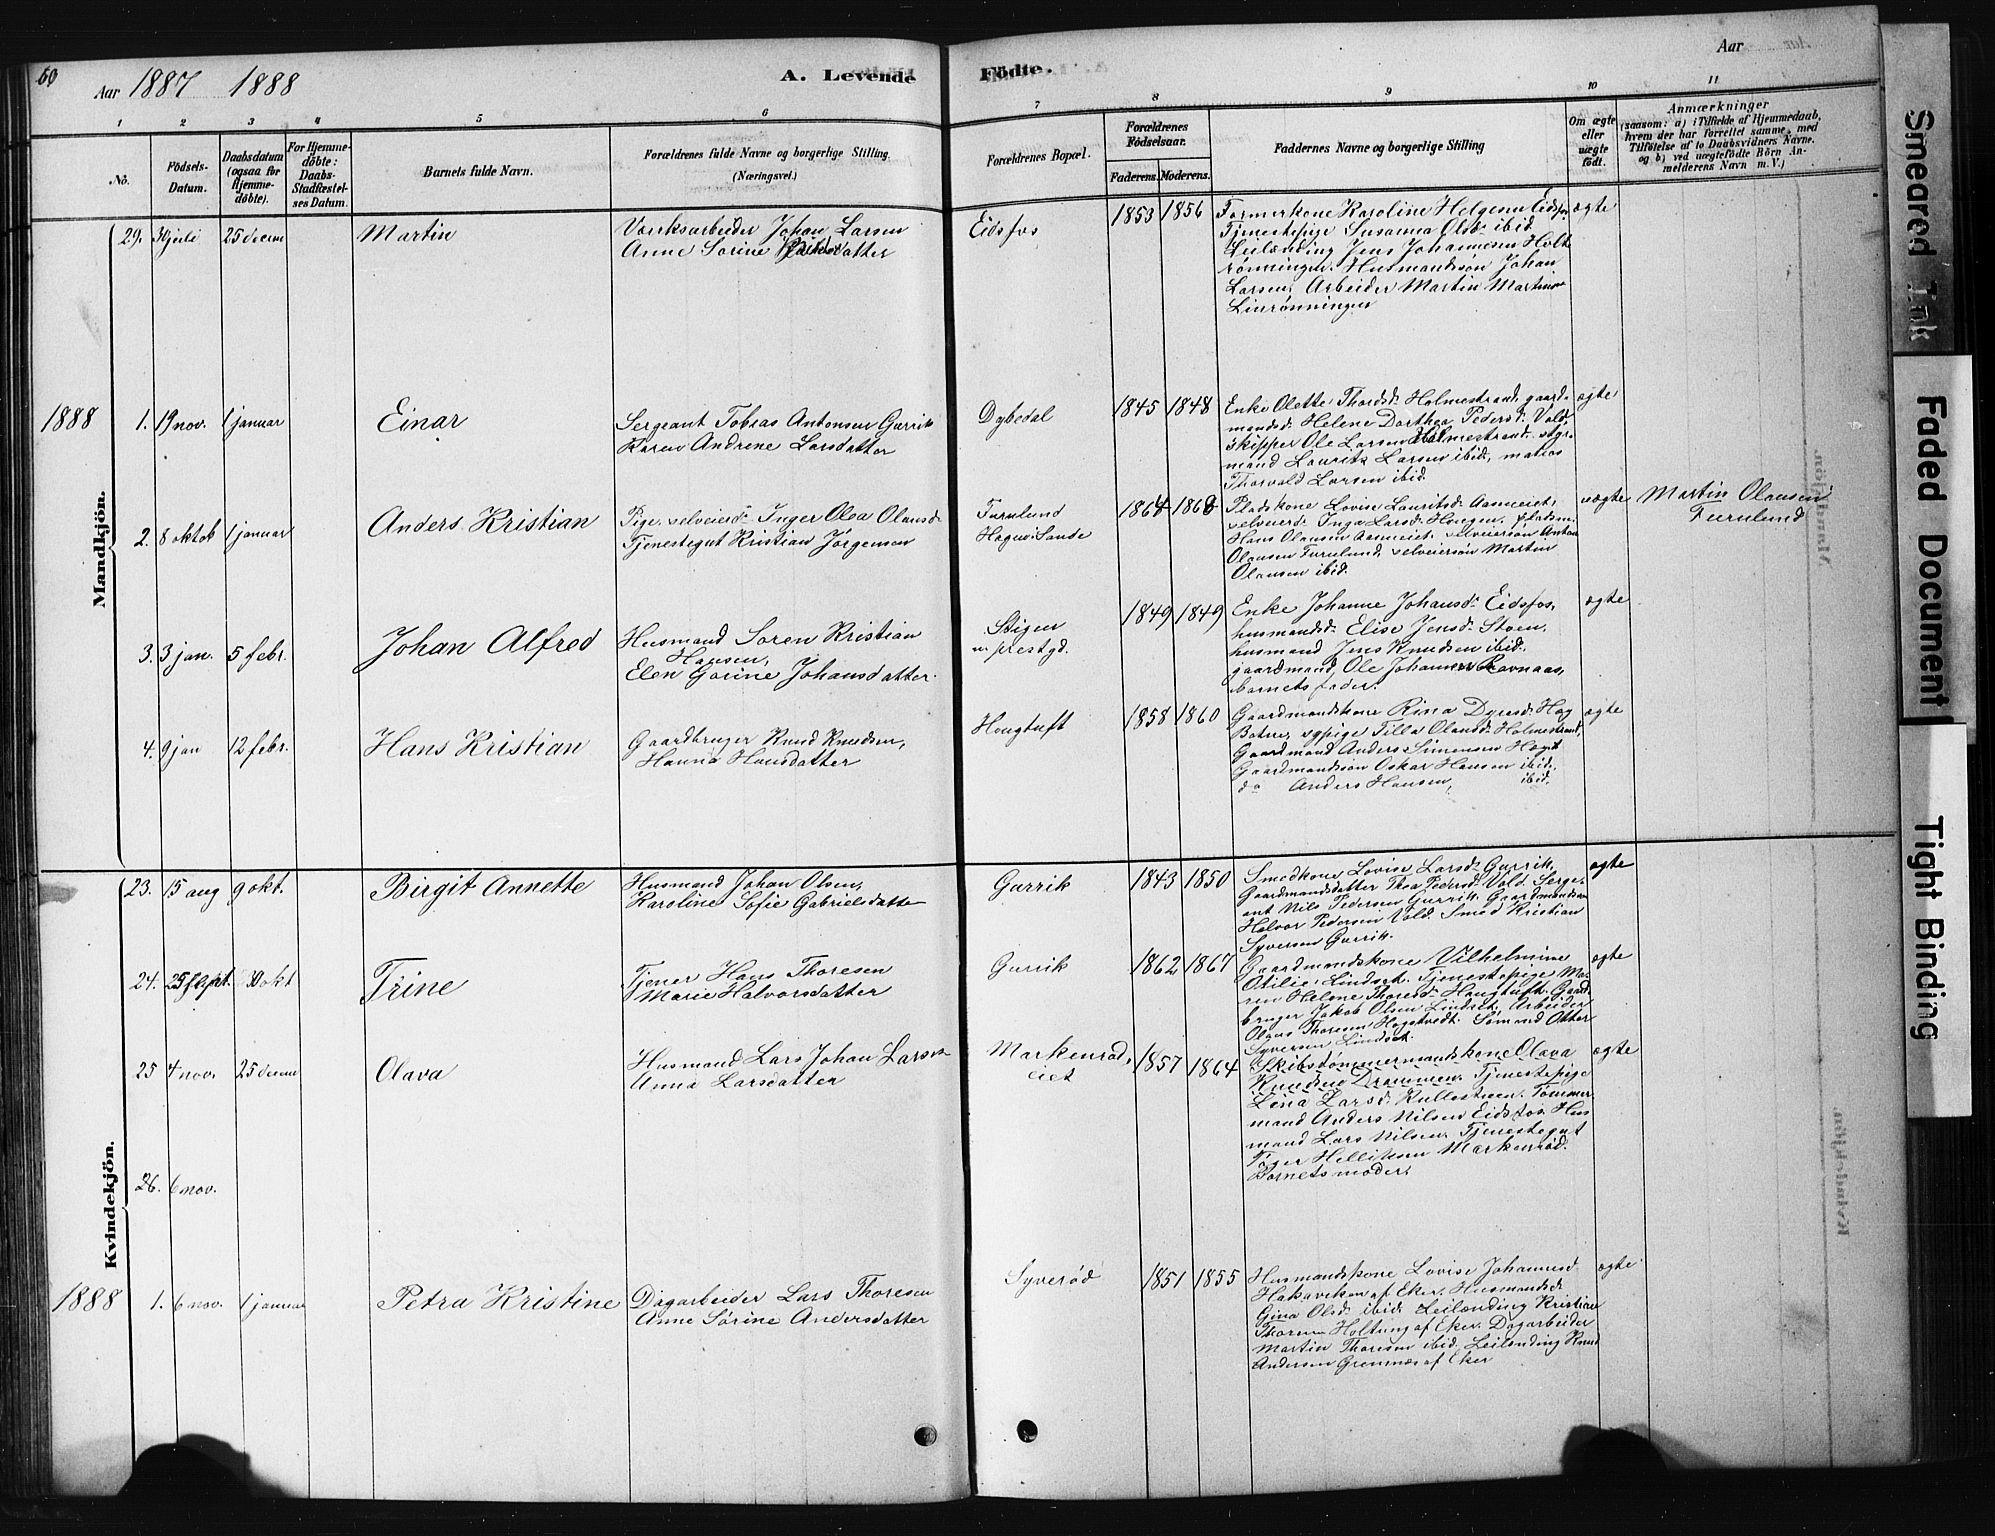 60
Aar 1887 1888
A. Levende Födte.
Aar
1 2 3 4 5 6 7 8 9 10 11
No.
Födsels-Datum.
Daabsdatum (ogsaa for Hjemme-døbte).
For Hjemme-døbte: Daabs-Stadfæstel-ses Datum.
Barnets fulde Navn.
Forældrenes fulde Navne og borgerlige Stilling.
(Næringsvei.)
Forældrenes Bopæl.
Forældrenes Födselsaar.
Faderens. Moderens.
Faddernes Navne og borgerlige Stilling
Om ægte eller uægte födt.
Anmærkninger
(saasom: a) i Tilfælde af Hjemmedaab,
hvem der har forrettet samme, med
Tilföielse af to Daabsvidners Navne.
og b) ved uægtefödte Börn An-
melderens Navn m. V.)
Mandkjön.
29. juli 25 decem Martin
Værksarbeider Johan Larsen
Anne Sorine
Eidsfos 1853 1856
Farmerkone Karoline Helgesen Eidsfos ægte
Tjenestepige Susanna Olsd. ibid.
Leilænding Jens Johannesen Holt
rønningen. Husmandssøn Johan
Larsen, Arbeider Martin Martinsen
Linrønningen
1888 1. 19 nov. 1 januar Einar
Sergeant Tobias Antonsen Gurrik
Karen Andrine Larsdatter
Dybedal 1845 1848
Enke Olette Thordsd. Holmestrand, gaard- ægte
mandsd. Helene Dorthea Pedersd. Vold,
skipper Ole Larsen Holmestrand, styr-
mand Laurits Larsen ibid, matros
Thorvald Larsen ibid.
2. 8 oktob 1 januar Anders Kristian
Pige selveierd. Inger Olea Olausd.
Tjenestegut Kristian Jørgensen
Furulund
Hagen i Sande
Pladskone Lovise Lauritsd. Aasneiet, uægte
selveierd. Inga Larsd. Haugen, pladsm.
Hans Olausen Aasneiet, selveiersøn Anton
Olausen Furulund, selveiersøn Martin
Olausen ibid.
Martin Olausen
Furulund
3. 3 jan. 5 febr. Johan Alfred
Husmand Soren Kristian
Hansen,
Elen Gorine Johansdatter.
Stigen
u. prestgd.
1849 1849
Enke Johanne Johansd. Eidsfos, ægte
husmandsd. Elise Jensd. Stoen,
husmand Jens Knudsen ibid.
gaardmand, Ole Johannesen Ravnaas,
barnets fader.
4. 9 jan 12 febr. Hans Kristian
Gaardbruger Knud Knudsen,
Hanna Hansdatter
Hougtuft 1858 1860
Gaardmandskone Rina Dyresd. Hag ægte
Botne, sypige Tilla Olausd. Holmestrand,
Gaardmand Anders Simensen Hagit
Gaardmandssøn Oskar Hansen ibid.
do Anders Hansen, ibid.
Kvindekjön.
23. 15 aug 9 okt. Birgit Annette
Husmand Johan Olsen,
Karoline Sofie Gabrielsdatter
Gurrik 1843 1850
Smedkone Lovise Larsd. Gurrik, ægte
Gaardmandsdatter Thea Pedersd. Vold. Serge-
ant Nils Pedersen Gurrik. Gaardmandsøn
Halvor Pedersen Vold. Smed Kristian
Syversen Gurrik.
24. 25 sept. 30 okt Trine
Tjener Hans Thoresen
Marie Halvorsdatter
Gurrik 1862 1867
Gaardmandskone Vilhelmine ægte
Otilie Lindset. Tjenestepige Ma-
ren Helene Thoresd. Haugtuft. Gaard-
bruger Jakob Olsen Lindset. Arbeider
Olaus Thoresen Hagstvedt. Sömand Otter
Syversen Lindset.
25 4 nov. 25 decem Olava
Husmand Lars Johan Larsen
Anna Larsdatter
Markenrød
eiet
1857 1864
Skibstømmermandskone Olava ægte
Knudsen Drammen. Tjenestepige
Lina Larsd. Kullesteen. Tømmer-
mand Anders Nilsen Eidsfos. Hus-
mand Lars Nilsen. Tjenestegut
Töger Helliksen Markenrød.
Barnets moder.
26. 6 nov.
1888 1. 6 nov. 1 januar Petra Kristine
Dagarbeider Lars Thoresen
Anne Sörine Andersdatter
Syverød 1851 1855
Husmandskone Lovise Johannesd. ægte
Hakaviken af Eker, Husmandsd.
Gina Olsd. ibid. Leilænding Kristian
Thoresen Holtung af Eker. Dagarbeider
Martin Thoresen ibid. Leilending Knud
Andersen Grennes af Eker
Mandkjön.
Kvindekjön.
Smeared Ink
Faded Document
Tight Binding